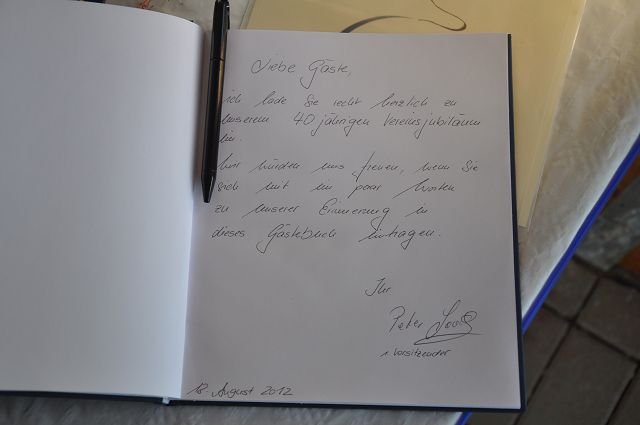 Liebe Gäste,
ich lade Sie recht herzlich zu
unserem 40 jährigen Vereinsjubiläum
ein.
Wir würden uns freuen, wenn Sie
sich mit ein paar Worten
zu unserer Erinnerung in
dieses Gästebuch eintragen.
Ihr
Peter
1. Vorsitzender
18. August 2012